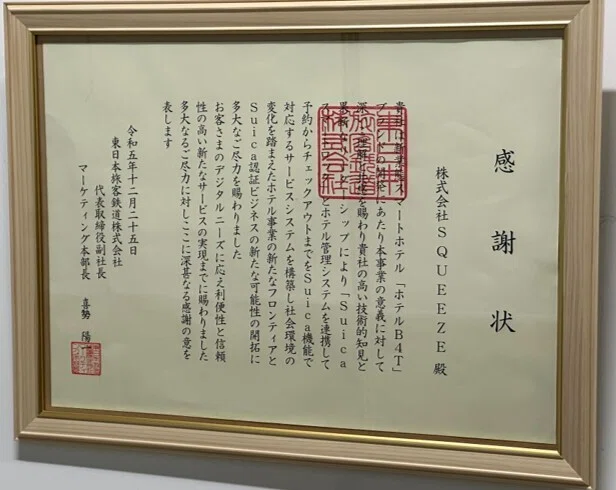 感謝状
株式会社SQUEEZE 殿
貴社は新業態スマートホテル「ホテルB4T」
ブランドの開発にあたり本事業の意義に対して
深いご理解とご を賜り貴社の高い技術的知見と
シップにより「Suica
とホテル管理システムを連携して
予約からチェックアウトまでをSuica機能で
対応するサービスシステムを構築し社会環境の
変化を踏まえたホテル事業の新たなフロンティアと
Suica認証ビジネスの新たな可能性の開拓に
多大なご尽力を賜わりました
お客さまのデジタルニーズに応え利便性と信頼
性の高い新たなサービスの実現までに賜わりました
多大なるご尽力に対しここに深甚なる感謝の意を
表します
令和五年十二月二十五日
東日本旅客鉄道株式会社
代表取締役副社長
マーケティング本部長 喜勢 陽一